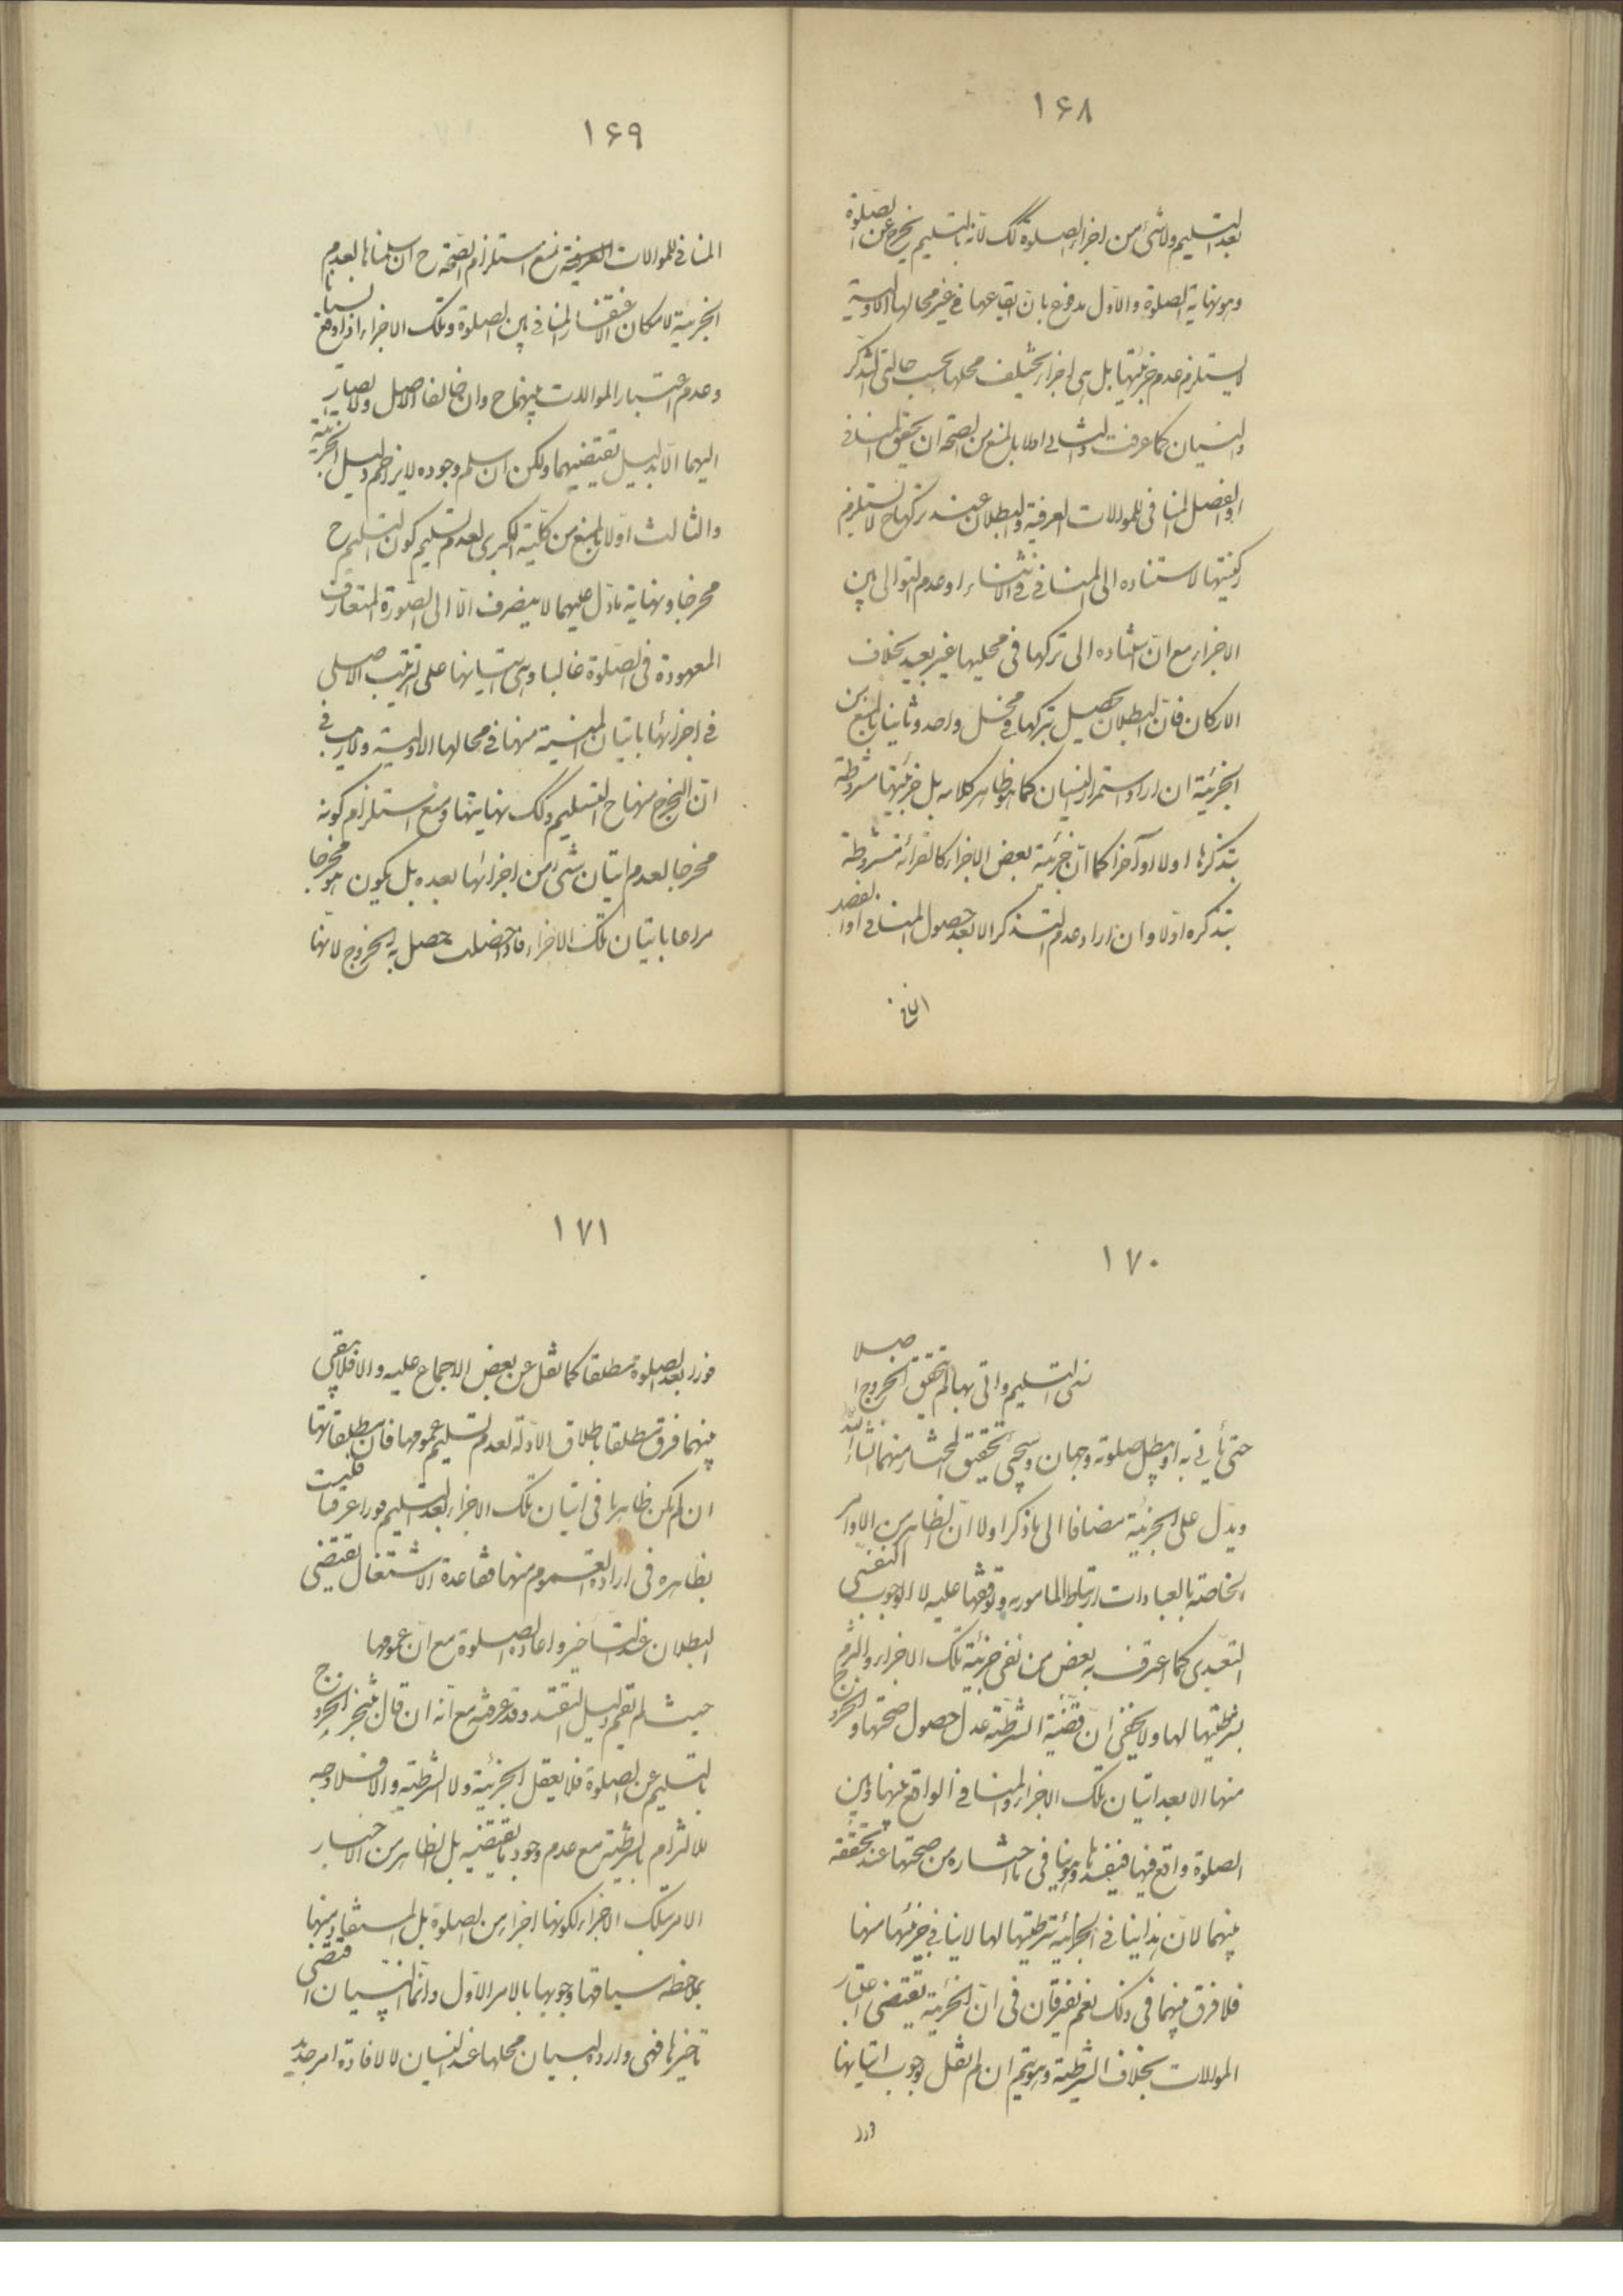 ۱۶۸
بعد التسلیم ولا شئ من اجزاء الصلوة کک لانه بالتسلیم یخرج عن الصلوة
وهو نهایة الصلوة والاول مدفوع بان ایقاعها فی غیر محالها الاولیة
لا یستلزم عدم جزئیتها بل هی اجزاء یختلف محلها بحسب حالتی التذکر
والنسیان کما عرفت والثانی اولا بالمنع من الصحة ان تحقق المنافی
او الفصل المنافی للموالات العرفیة والبطلان عند ترکها ح لا یستلزم
رکنیتها لاستناده الی المنافی فی الاثناء او عدم التوالی بین
الاجزاء مع ان استناده الی ترکها فی محلیها غیر بعید بخلاف
الارکان فان البطلان یحصل بترکها فی محل واحد وثانیا بالمنع من
الجزئیة ان اراد استمرار النسیان کما هو ظاهر کلامه بل جزئیتها مشروطة
بتذکرها اولا او آخرا کما ان جزئیة بعض الاجزاء کالقرائة مشروطة
بتذکره اولا وان اراد عدم التذکر الا بعد حصول المنافی او الفصل
المنافی
۱۶۹
المنافی للموالات العرفیة نمنع استلزام الصحة ح ان سلمناها لعدم
الجزئیة لامکان اغتفار المنافی بین الصلوة وتلک الاجزاء اذا وقع نسیانا
وعدم اعتبار الموالات بینهما ح وان خالفا الاصل ولا یصار
الیهما الا بدلیل یقتضیهما ولکن ان سلم وجوده لا یزاحم دلیل الجزئیة
والثالث اولا بالمنع من کلیة الکبری لعدم تسلیم کون التسلیم ح
مخرجا ونهایة ما دل علیهما لا ینصرف الا الی الصورة المتعارف
المعهودة فی الصلوة غالبا وهی اتیانها علی الترتیب الاصلی
فی اجزائها باتیان المنسیة منها فی محالها الاولیة ولا ریب فی
ان المخرج منها ح التسلیم وکک نهایتها ومنع استلزام کونه
مخرجا لعدم اتیان شئ من اجزائها بعده بل یکون هو مخرجا
مراعا باتیان تلک الاجزاء فاذا حصلت حصل به الخروج لانها
۱۷۰
نسی التسلیم واتی بها لم یتحقق الخروج اصلا
حتی یأتی به او یبطل صلوته وجهان وسیجئ تحقیق المختار منهما انشاء الله
ویدل علی الجزئیة مضافا الی ما ذکر اولا ان الظاهر من الاوامر
الخاصة بالعبادات ارتباط المامور به وتوقفها علیه لا الوجوب النفسی
التعبدی کما اعترف به بعض من نفی جزئیة تلک الاجزاء والتزم
بشرطیتها لها ولا یخفی ان قضیة الشرطیة عدم حصول صحتها والخروج
منها الا بعد اتیان تلک الاجزاء والمنافی الواقع بینها وبین
الصلوة واقع فیها فیفسدها وهو ینافی ما اختاره من صحتها عند تحققه
بینهما لان هذا ینافی الجزئیة شرطیتها لها لا ینافی جزئیتها منها
فلا فرق بینهما فی ذلک نعم یفترقان فی ان الجزئیة یقتضی اعتبار
الموالات بخلاف الشرطیة وهو یتم ان لم نقل بوجوب اتیانها
فورا
۱۷۱
فورا بعد الصلوة مطلقا کما نقل عن بعض الاجماع علیه والا فلا یبقی
بینهما فرق مطلقا باطلاق الادلة لعدم تسلیم عمومها فان مطلقاتها
ان لم یکن ظاهرا فی اتیان تلک الاجزاء بعد التسلیم فورا عرفیا فلیست
بظاهره فی ارادة العموم منها فقاعدة الاشتغال یقتضی
البطلان عند التاخیر واعادة الصلوة مع ان عمومها
حیث لم یقم دلیل التقیید وقد عرفته مع انه ان قال بتنجز الخروج
بالتسلیم عن الصلوة فلا یعقل الجزئیة ولا الشرطیة والا فلا وجه
للالتزام بالشرطیة مع عدم وجود ما یقتضیه بل الظاهر من الاخبار
الامر بتلک الاجزاء لکونها اجزاء من الصلوة بل المستفاد منها
بملاحظة سیاقها وجوبها بالامر الاول وانما النسیان اقتضی
تاخیرها فهی واردة لبیان محلها عند النسیان لا لافادة امر جدید